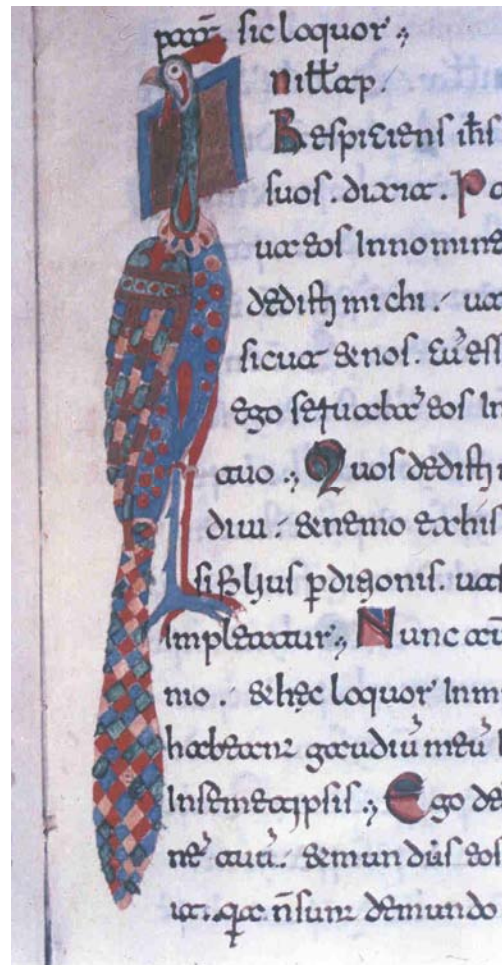 sic loquor
Respiciens ihs
suos. dixit. Pa
ua eos Innomine
dedisti michi. ut
sicut & nos. Cū ess
ego seruabā eos In
tuo. Quos dedisti
diui. & nemo exhis
si filius pdicionis. ut
Impleatur. Nunc au
nio. & hęc loquor Inm
habeant gaudiū meū
Insemetipsis. Ego de
nē tuū. & mundus eos
it. qa n̄sunt demundo